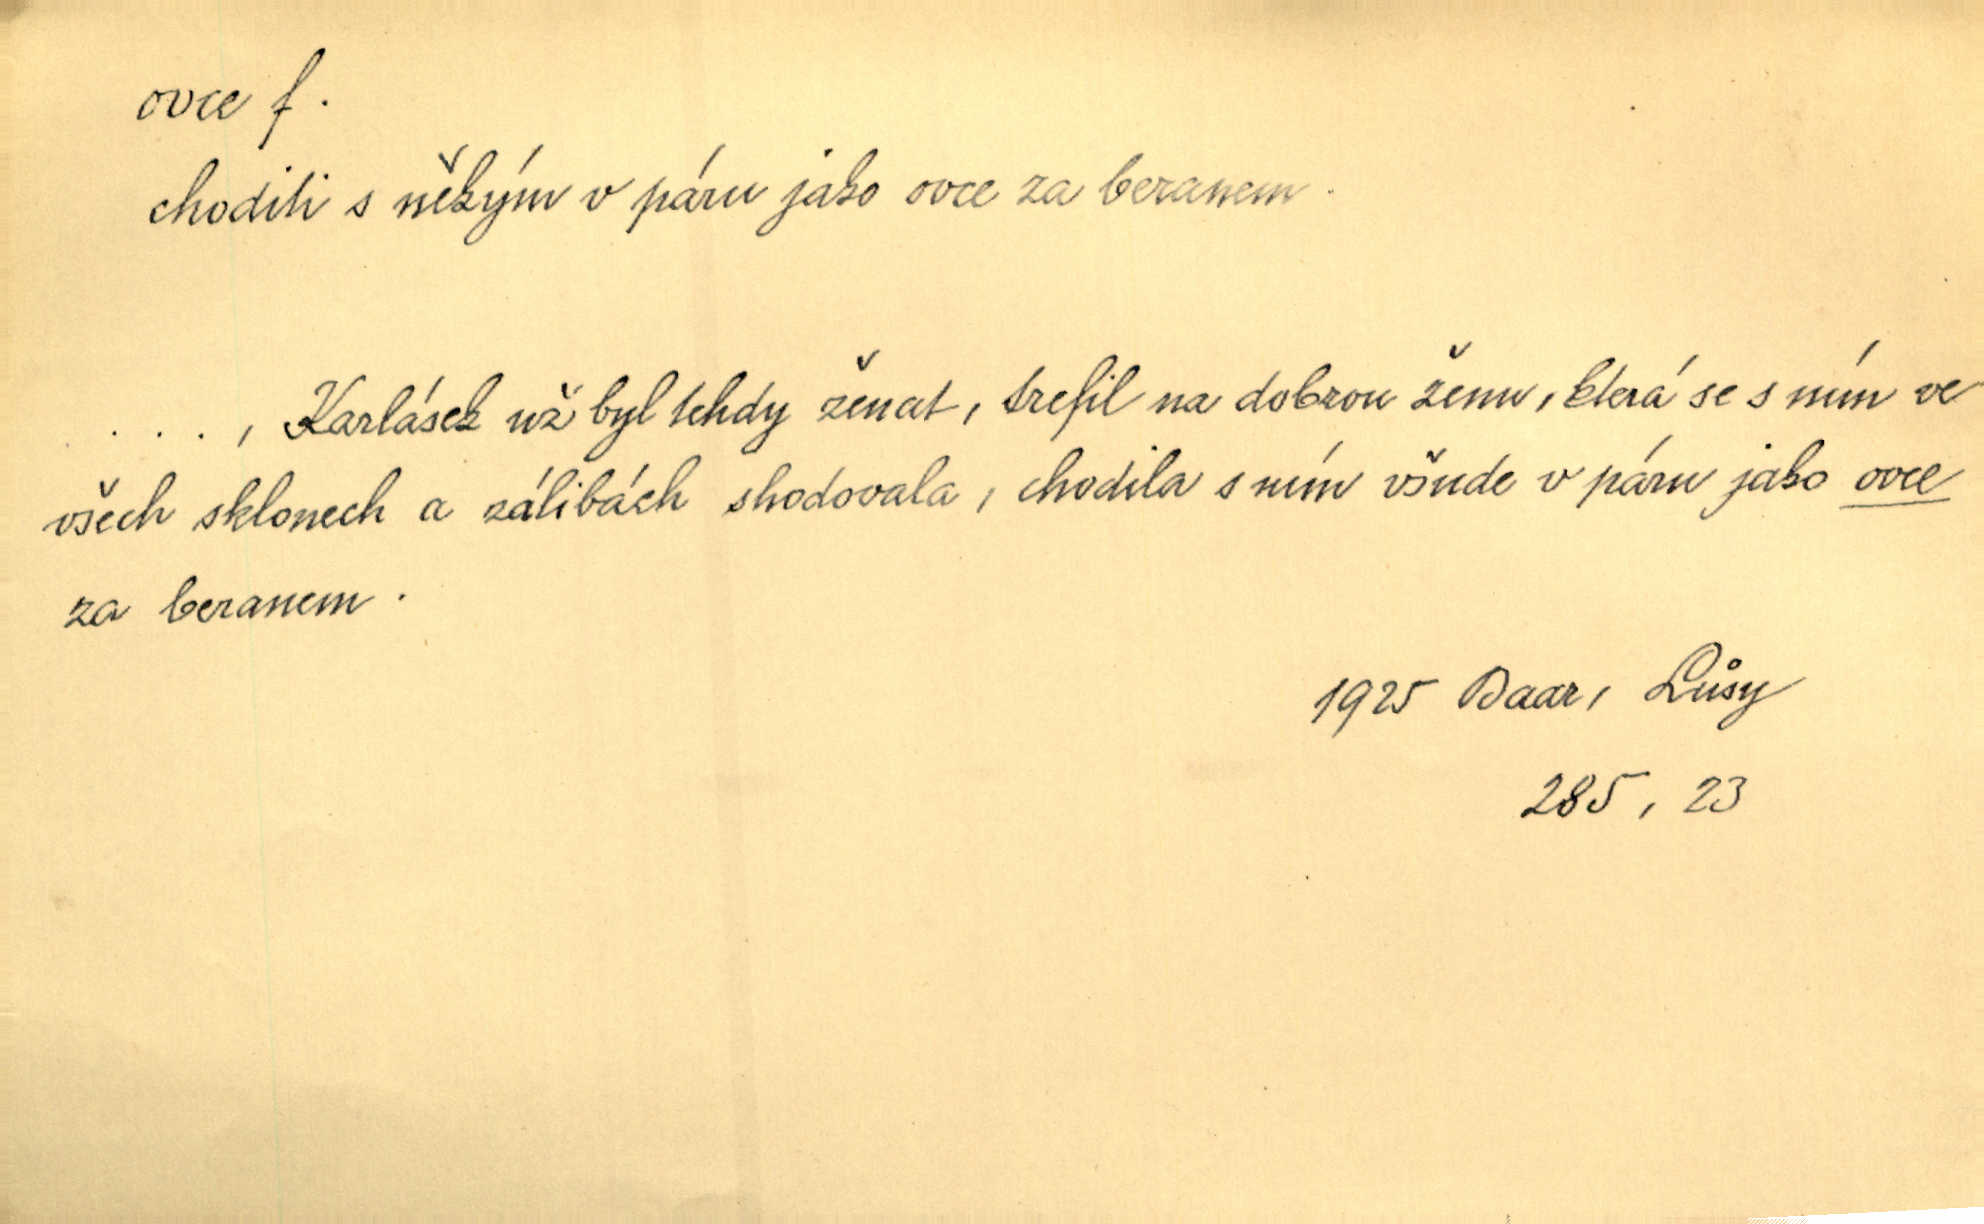 ovce f.
choditi s někým v páru jako ovce za beranem.
. . . ., Karlásek už byl tehdy ženat, trefil na dobrou ženu, která se s ním ve
všech sklonech a zálibách shodovala, chodila s ním všude v páru jako ovce
za beranem.
1925 Baar, Lůsy
285, 23